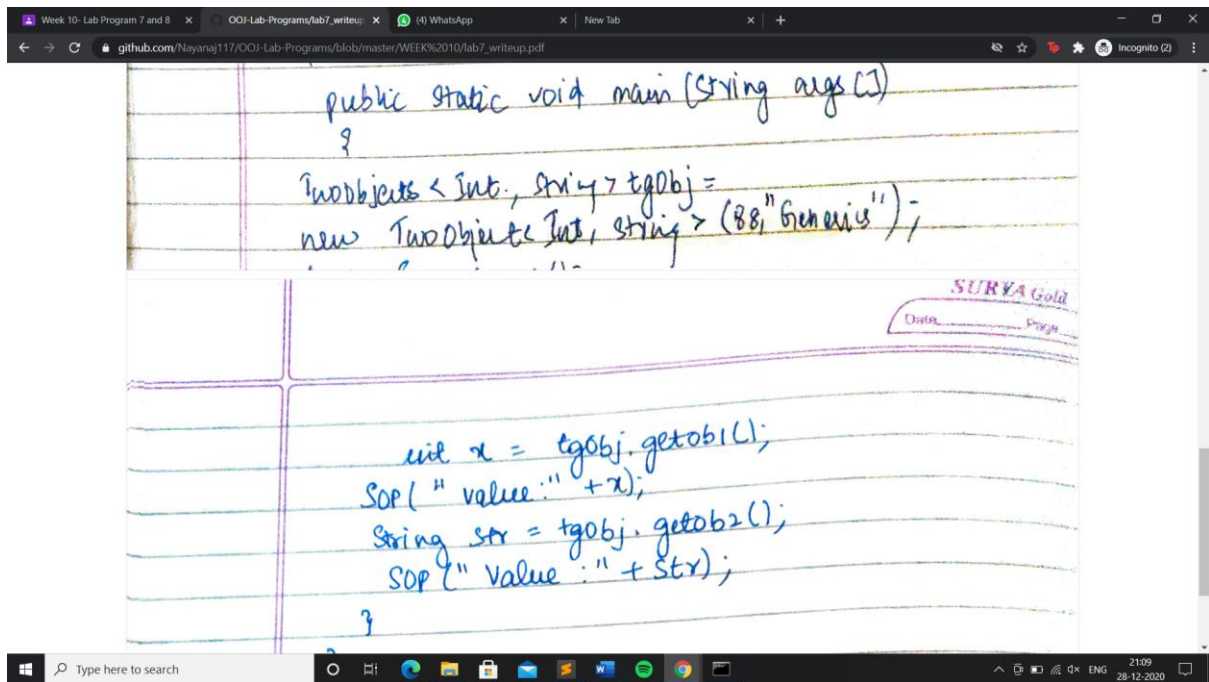 Week 10- Lab Program 7 and 8
OOJ-Lab-Programs/lab7_writeup
(4) WhatsApp
New Tab
github.com/Nayanaj117/OOJ-Lab-Programs/blob/master/WEEK%2010/lab7_writeup.pdf
Incognito (2)
public static void main (String args [])
{
TwoObjects < Int., String > tgObj =
new TwoObjects< Int, String > (88,"Generics");
SURYA Gold
Date Page
int x = tgObj.getob1();
SOP(" value:" +x);
String str = tgObj.getob2();
SOP(" Value :" + str);
}
Type here to search
ENG
21:09
28-12-2020